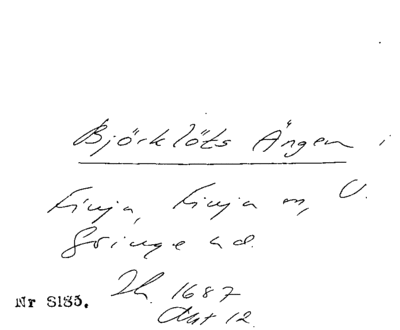 Björklöts Ängen i
Finja, Finja sn, V.
Göinge hd.
Jb. 1687
Akt 12.
Nr S183.